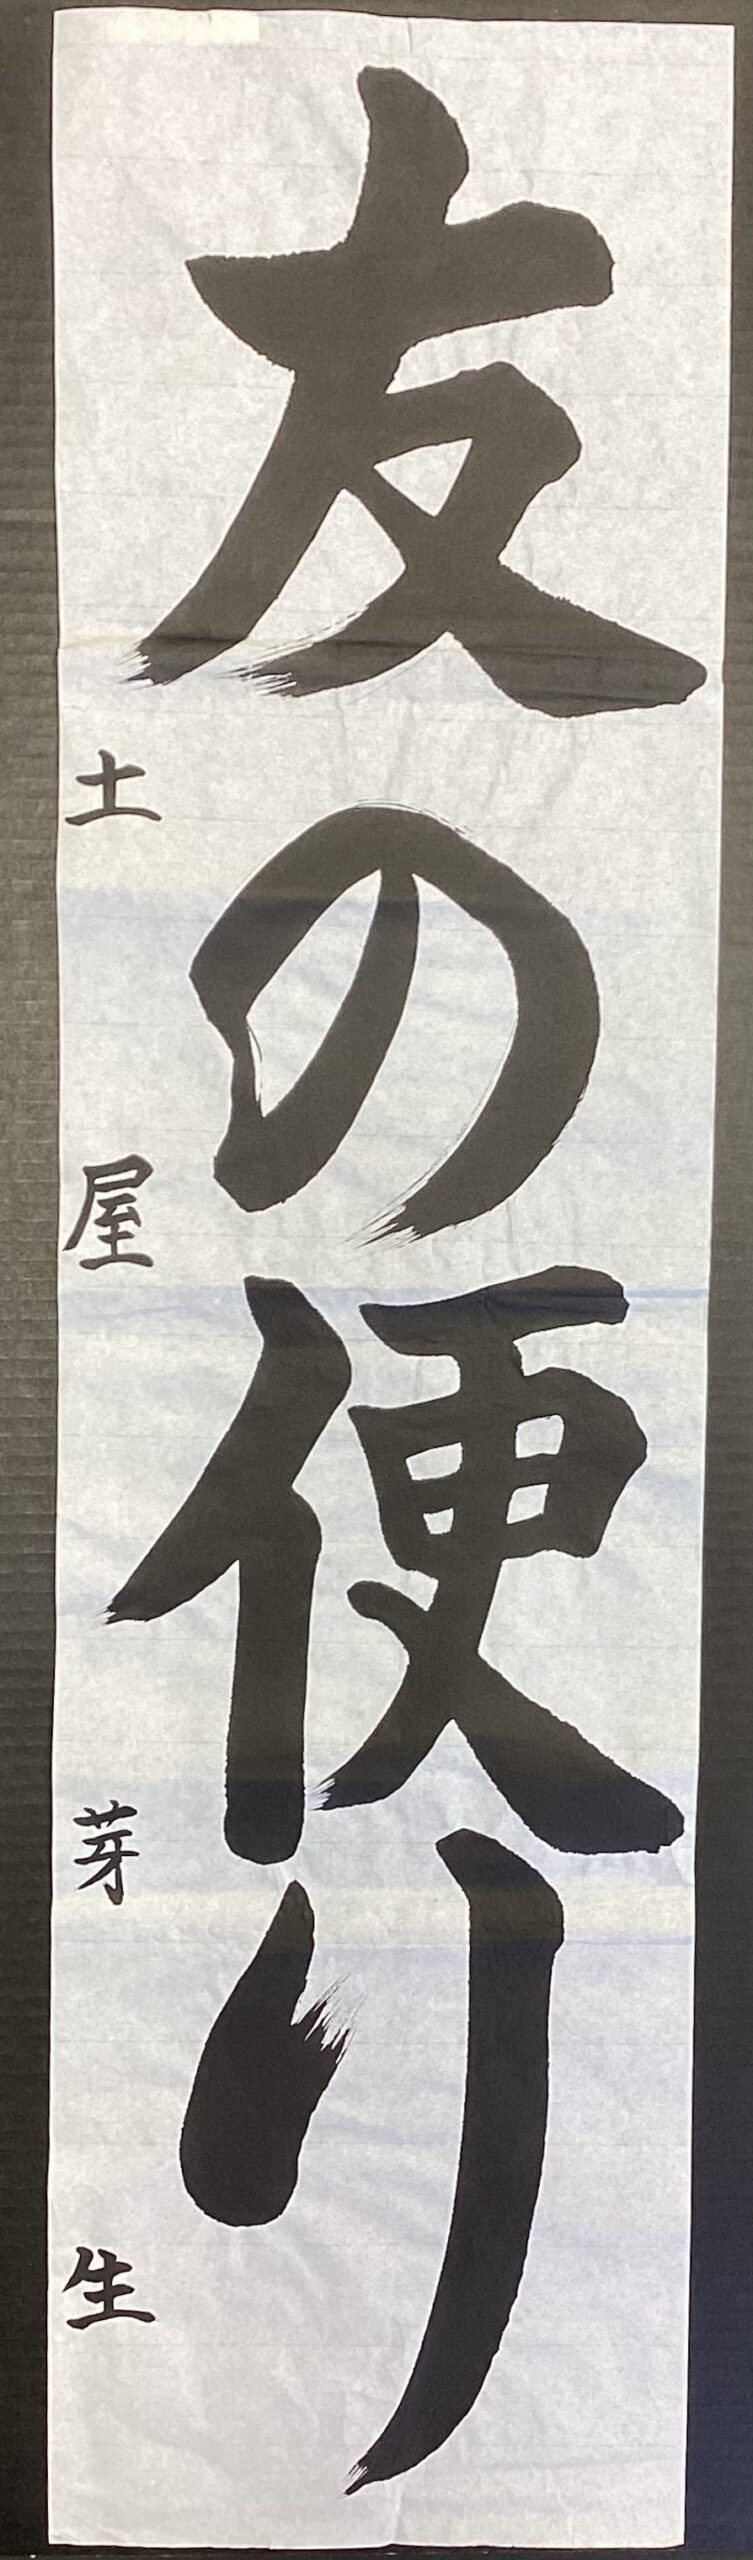 友の便り
土屋芽生